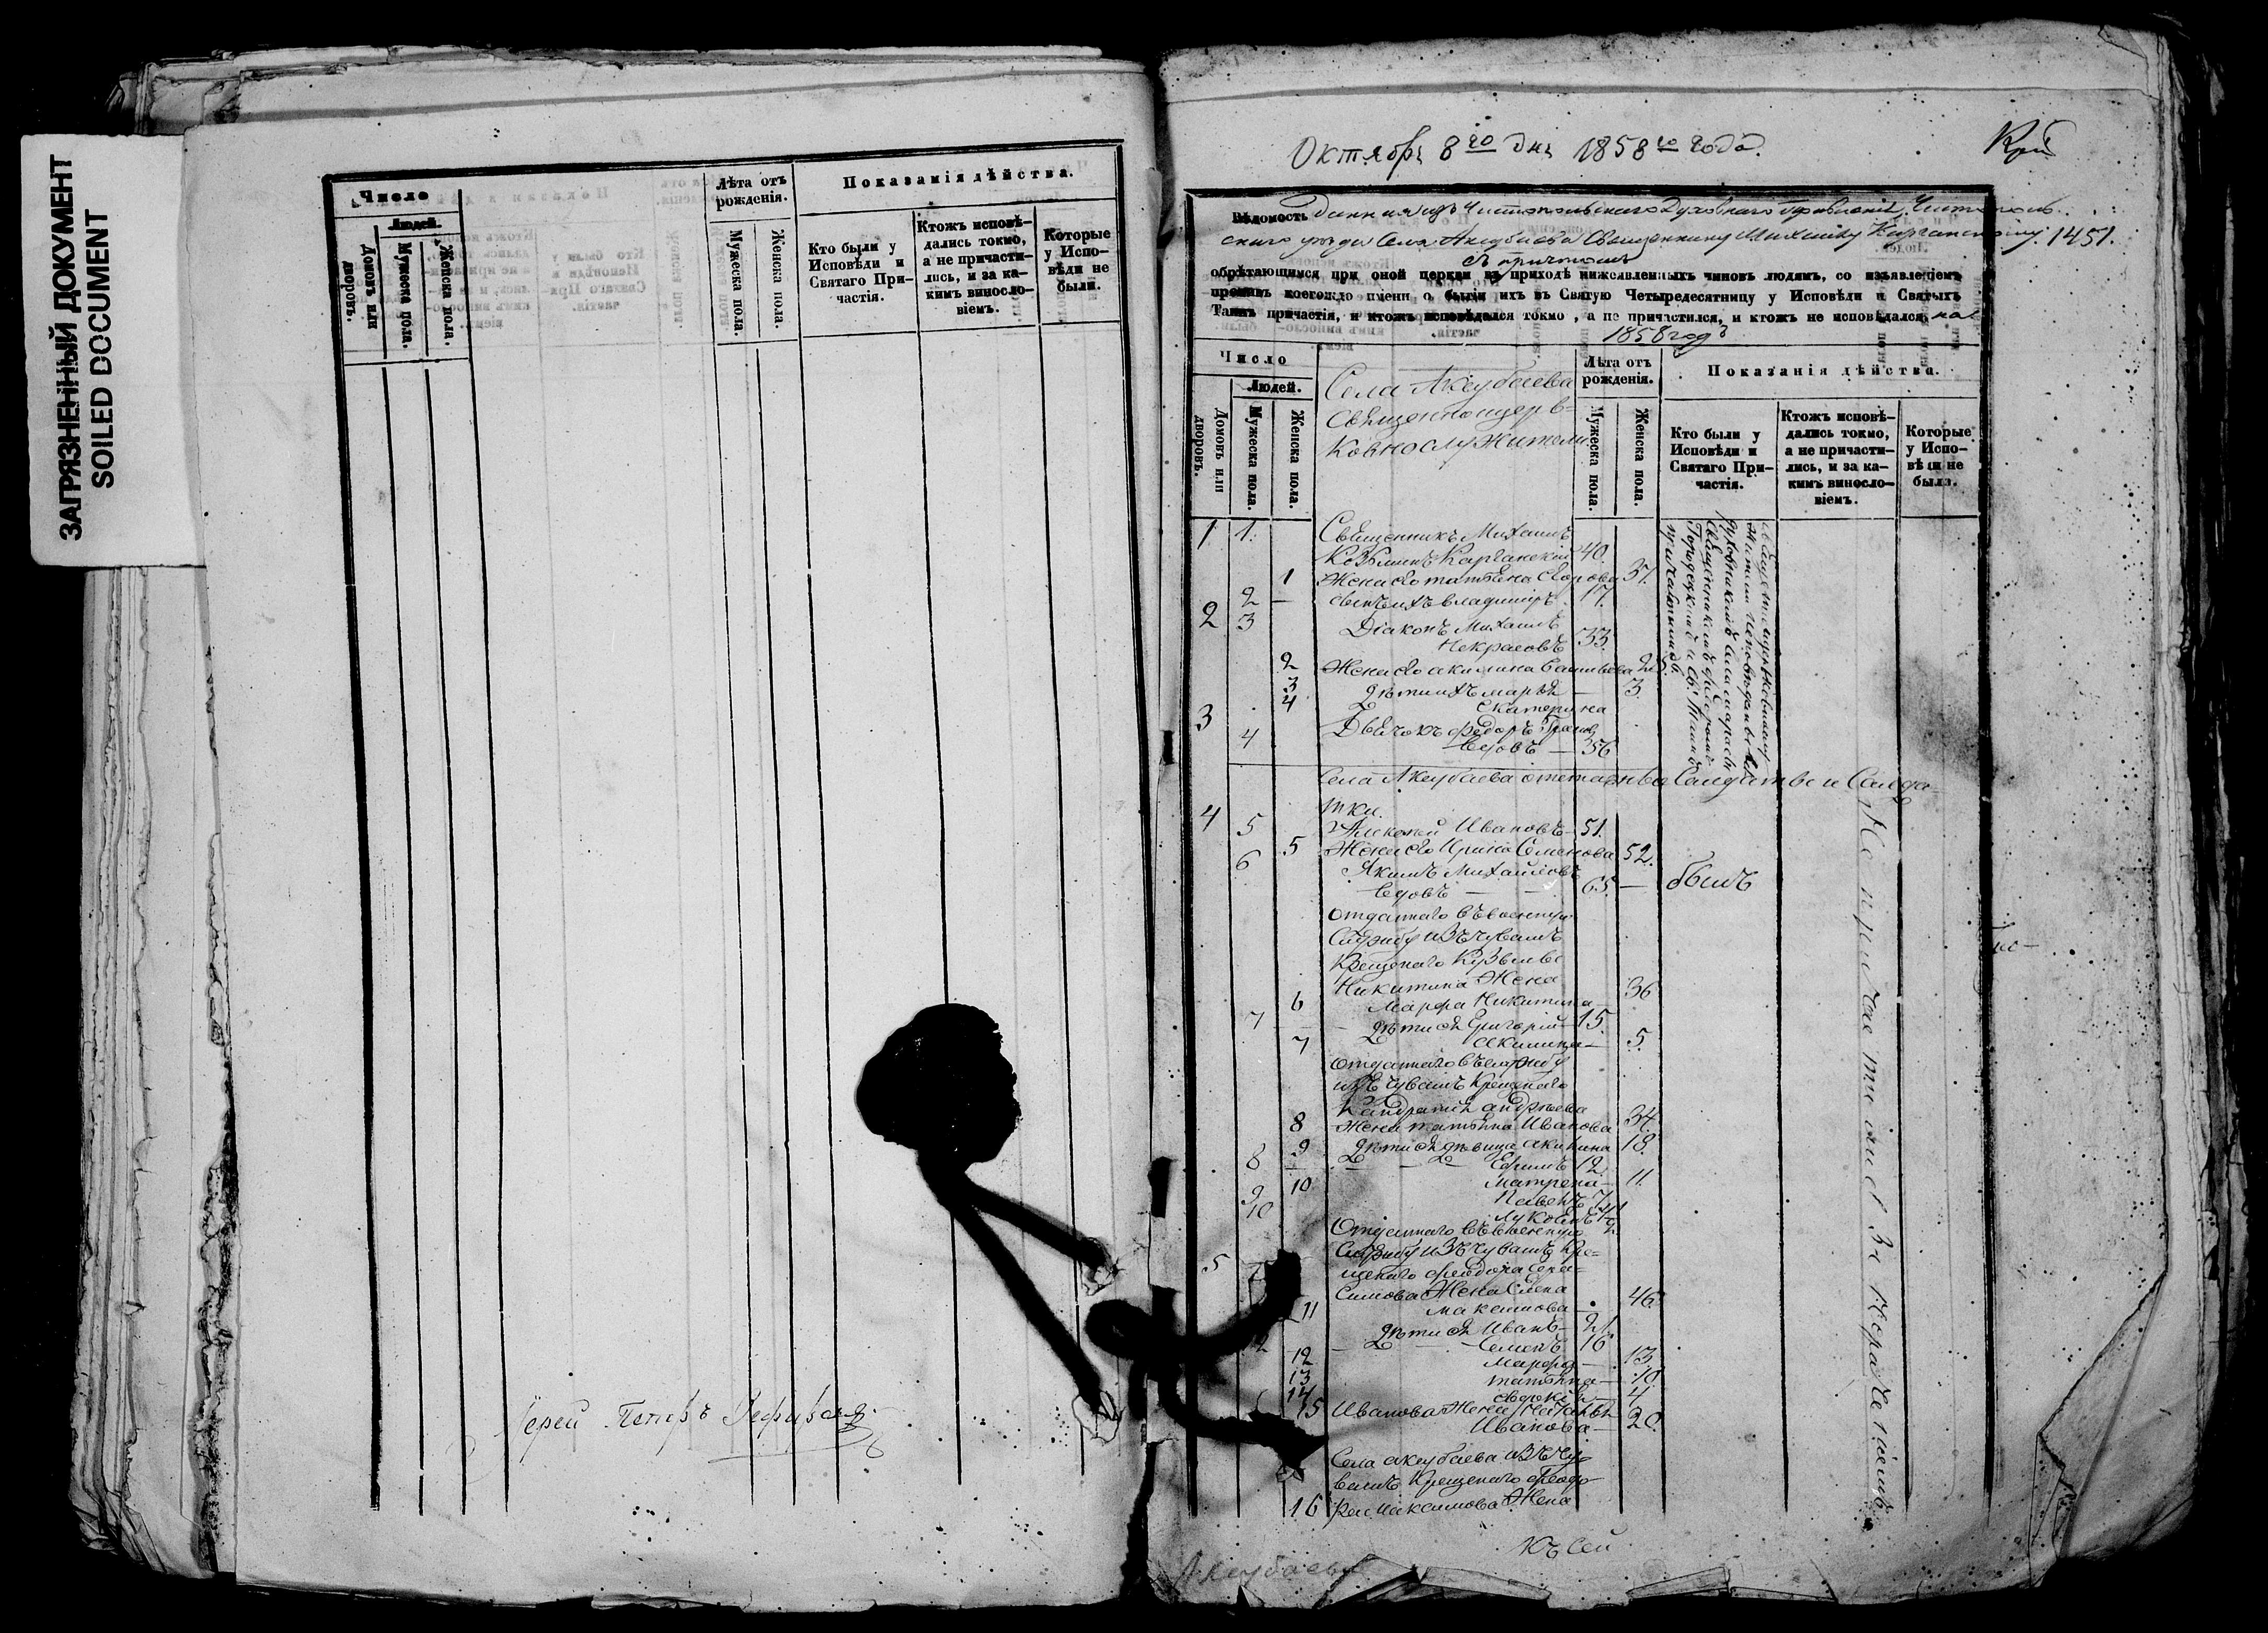 ЗАГРЯЗНЕННЫЙ ДОКУМЕНТ
SOILED DOCUMENT
Число
Людей.
Домовъ или дворовъ.
Мужеска пола.
Женска пола.
Лѣта отъ рожденія.
Мужеска пола.
Женска пола.
Показанія дѣйства.
Кто были у Исповѣди и Святаго Причастія.
Ктожъ исповѣдались токмо, а не причастились, и за какимъ винословіемъ.
Которые у Исповѣди не были.
Іерей Петръ
Октября 8го дня 1858го года.
Вѣдомость данная изъ Чистопольскаго Духовнаго Правленія, Чистополь-
скаго уѣзда Села Акзубаева Священнику Михаилу Карганскому 1451.
съ причтомъ
обрѣтающимся при оной церкви въ приходѣ нижеявленныхъ чиновъ людямъ, со изъявленіемъ
противъ коегождо имени о бытіи ихъ въ Святую Четыредесятницу у Исповѣди и Святыхъ
Таинъ причастія, и ктожъ исповѣдался токмо, а не причастился, и ктожъ не исповѣдался, на
1858 годъ
Число
Людей.
Домовъ или дворовъ.
Мужеска пола.
Женска пола.
Села Акзубаева
Священноцерв-
ковнослужители.
Лѣта отъ рожденія.
Мужеска пола.
Женска пола.
Показанія дѣйства.
Кто были у Исповѣди и Святаго Причастія.
Ктожъ исповѣдались токмо, а не причастились, и за какимъ винословіемъ.
Которые у Исповѣди не были.
1 1. Священникъ Михаилъ
Козьминъ Карганский 40.
1 Жена его татьяна Егорова 37.
2 — сынъ ихъ владимиръ 17.
2 3 Діаконъ Михаилъ
Некрасовъ 33.
2 Жена его акилина Савельева 25.
3 дѣти ихъ марья — 3
4 Екатерина
3 4 Дьячокъ Федоръ
Вдовъ — 36
Села Акзубаева отставные Салдаты и Салда-
тки.
4 5 Алексѣй Ивановъ — 51.
5 Жена его Ирина Семенова 52.
6 Якимъ Михайловъ
Вдовъ — 65 — былъ
отданнаго въ военную
Службу изъ чувашъ
Крещенаго Кузьмы
Никитина Жена
6 Марфа Никитина — 36
7 дѣти ея Григорій — 15.
7 акилина — 5.
отданнаго въ службу
изъ чувашъ Крещенаго
Кандратія андреева
8 Жена татьяна Иванова 34.
9 дѣти ея дѣвица акилина 18.
8 Ефимъ 12
10 Матрена — 11.
9 Павелъ 7
10 Лукоянъ
Отданнаго въ военную
5 Службу изъ чувашъ Кре-
щенаго феодора Гера-
симова Жена Елена
11 максимова — 46
дѣти ея Иванъ — 21
12 Семенъ 16
12 Марфа — 13
13 татьяна — 10
14 — 4
15 Иванова Жена Наталья
Иванова — 20.
Села акзубаева изъ чу-
вашъ Крещенаго Феодо-
16 ра максимова Жена
Не причастились за нерачениемъ
къ сей
Акзубаева